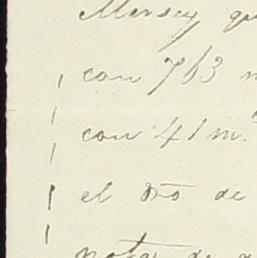 Mersey qu
con 763 m
con 41 m.
el Dño de
nota de